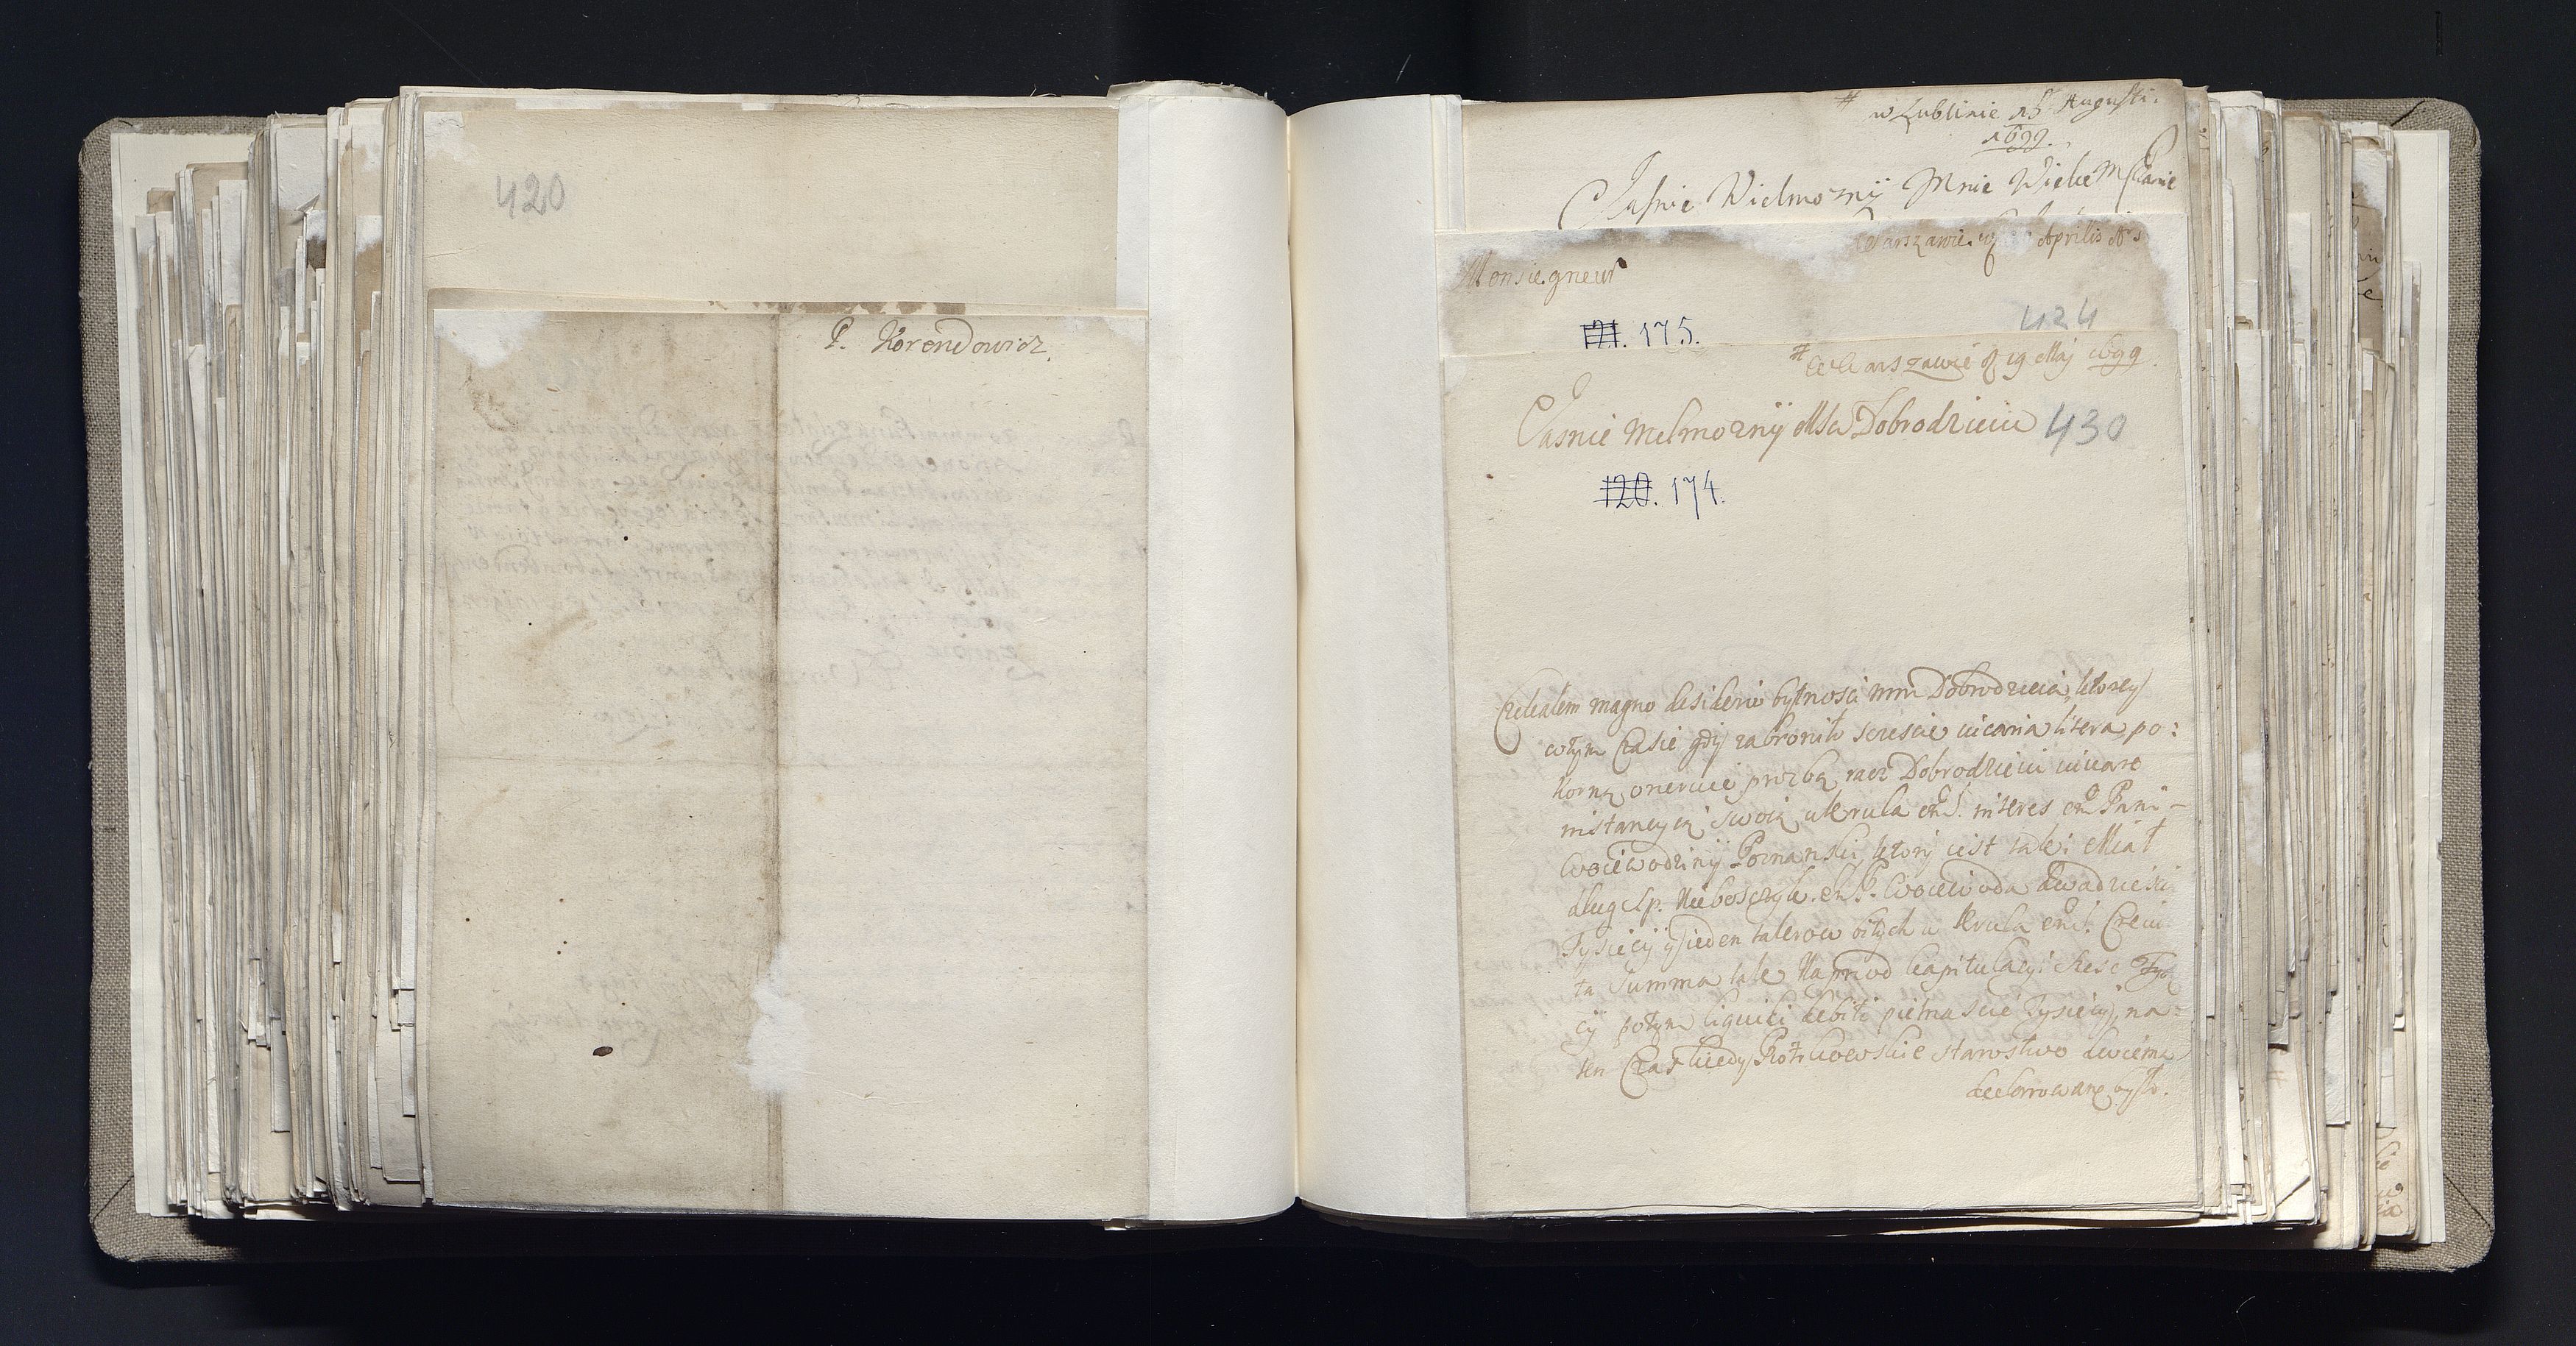 420
P. Korendowicz.
# w Lublinie 15 Augusti.
1699.
Jasnie Wielmozny Mnie Wielce Mści Panie
Warszawie Aprilis
Monsiegneur
121. 175.
424
# W Warszawie d 19 Maj 1699.
Jasnie Wielmozny Msci Dobrodzieiu 430
120. 174.
Czekałem magno desiderio bytnosci mm Dobrodzieia, ktorey
w tym czasie gdy zabroniło sczescie vicaria litera po:
korną oneruie prozbą, racz Dobrodzieiu iuvare
instancyią swoią u Krula interes
Woiewodziny Poznanski, ktory iest taki Miał
dług Sp. Nieboszczyk Woiewoda dwadziescia
Tysięcy y ieden talerow bitych u Krula
ta Summa tak Naprzod kapitulacyi szesc Tysię
cy potym liquidi debiti pietnascie Tysięcy, na
ten Czas kiedy Piotrkowskie starostwo dwiema
deklarowane było.